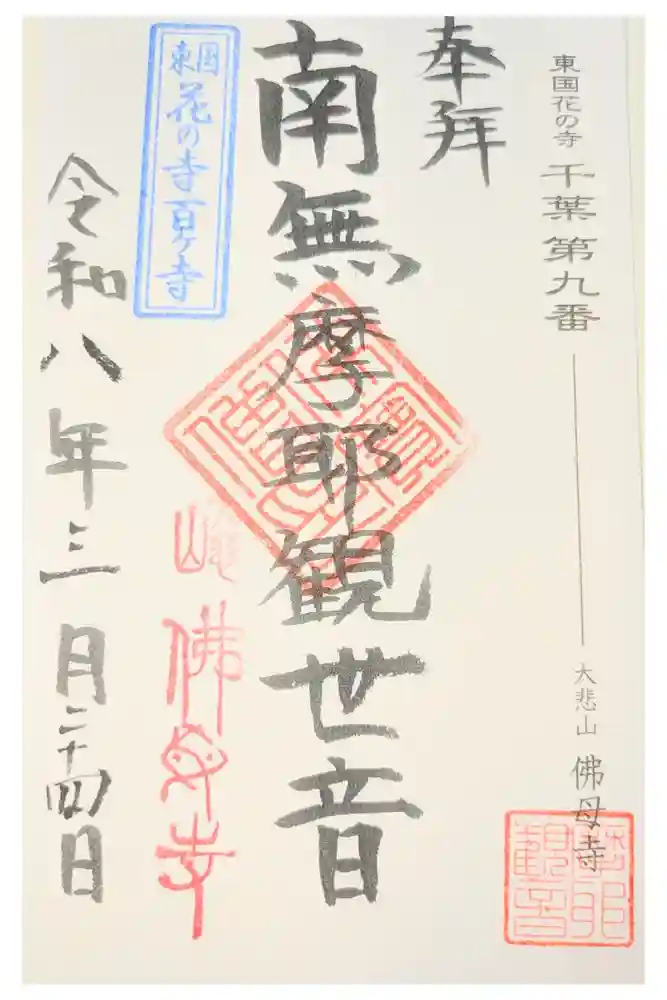 東国花の寺 千葉第九番 大悲山 佛母寺
奉拝
南無摩耶観世音
東国
花の寺百ヶ寺
佛母寺
令和八年三月二十四日